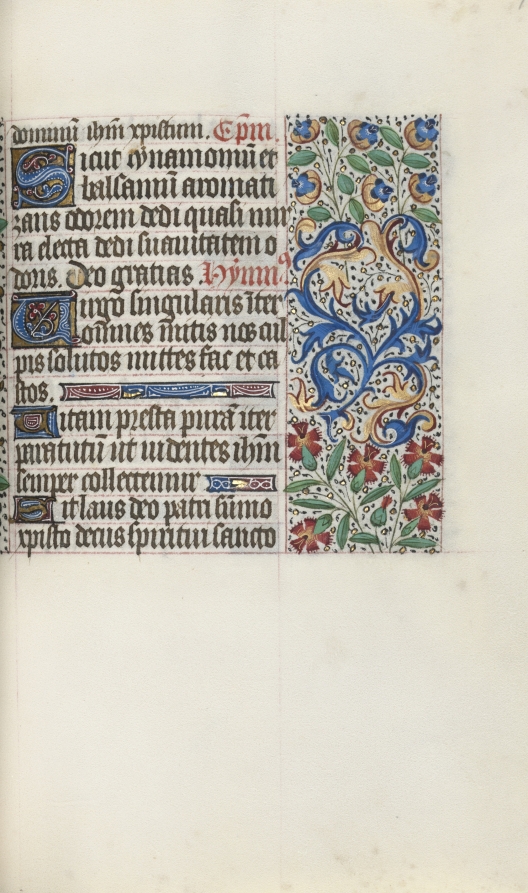 dominū ihm̄ xpistum. Ep̄m.
Sicut cynamomū et
balsamū aromati
zans odorem dedi quasi mir
ra electa dedi suavitatem o
doris. Deo gratias Hymnꝰ
Virgo singularis īter
omnes mitis nos cul
pis solutos mittes fac et ca
stos.
Vitam presta purā iter
para tutū ut videntes ihm̄
semper collectemur
Sit laus deo patri sūmo
xpisto decus spiritui sancto